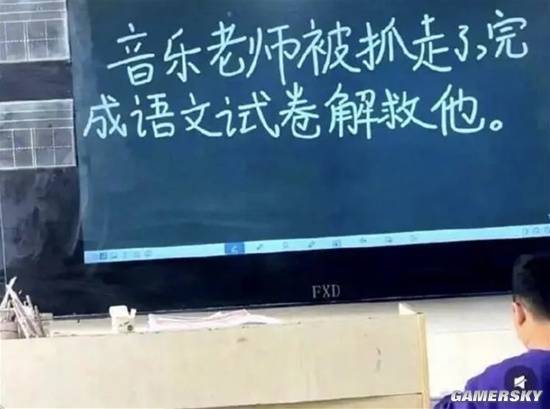 音乐老师被抓走了,完
成语文试卷解救他。
FXD
GAMERSKY